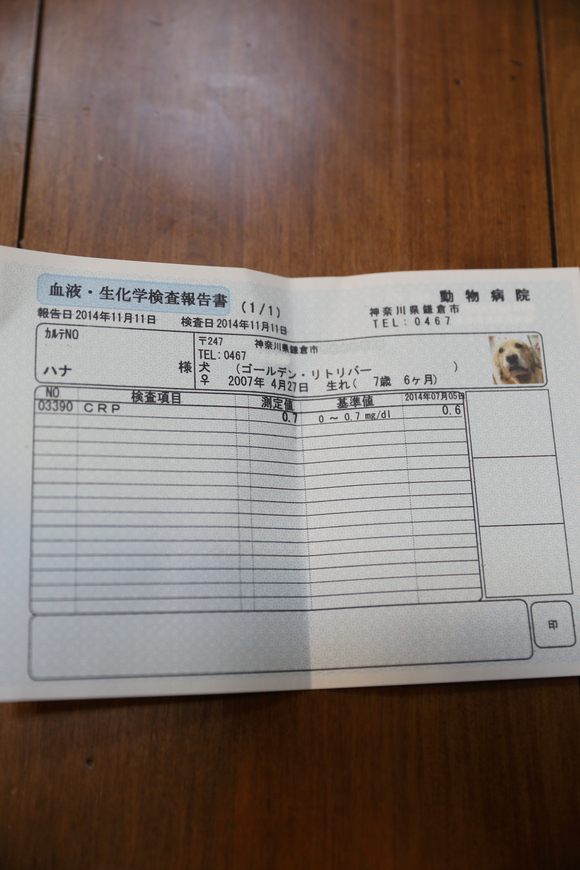 血液・生化学検査報告書 (1/1)
動物病院
報告日 2014年11月11日 検査日 2014年11月11日
神奈川県鎌倉市
TEL:0467
カルテNO
〒247 神奈川県鎌倉市
TEL:0467
ハナ 様
犬 (ゴールデン・リトリバー )
♀ 2007年 4月27日 生れ( 7歳 6ヶ月)
NO 検査項目 測定値 基準値 2014年07月05日
03390 CRP 0.7 0 ~ 0.7 mg/dl 0.6
印